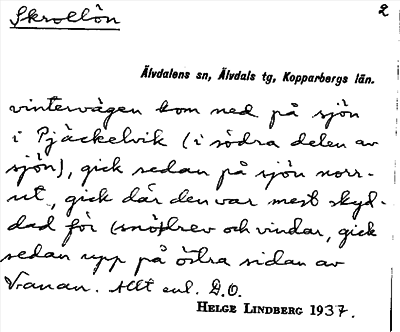 Skrollön
2
Älvdalens sn, Älvdals tg, Kopparbergs län.
vintervägen kom ned på sjön
i Pjäckelvik (i södra delen av
sjön), gick sedan på sjön norr-
ut, gick där den var mest skyd-
dad för (snö)drev och vindar, gick
sedan upp på östra sidan av
Vanan. Allt enl. D.O.
HELGE LINDBERG 1937.